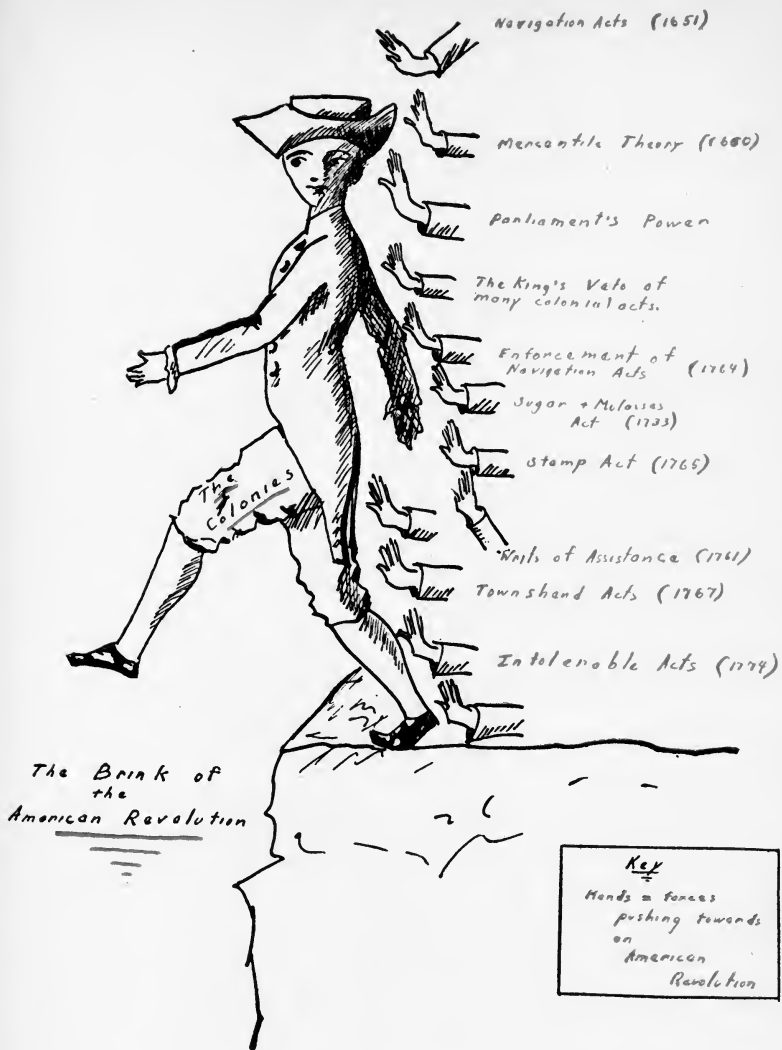 Navigation Acts (1651)
Mercantile Theory (1660)
Parliament's Power
The King's Veto of
many colonial acts.
Enforcement of
Navigation Acts (1764)
Sugar + Molasses
Act (1733)
Stamp Act (1765)
The
Colonies
Writs of Assistance (1761)
Townshand Acts (1767)
Intolerable Acts (1774)
The Brink of
the
American Revolution
Key
Hands = forces
pushing towards
an
American
Revolution